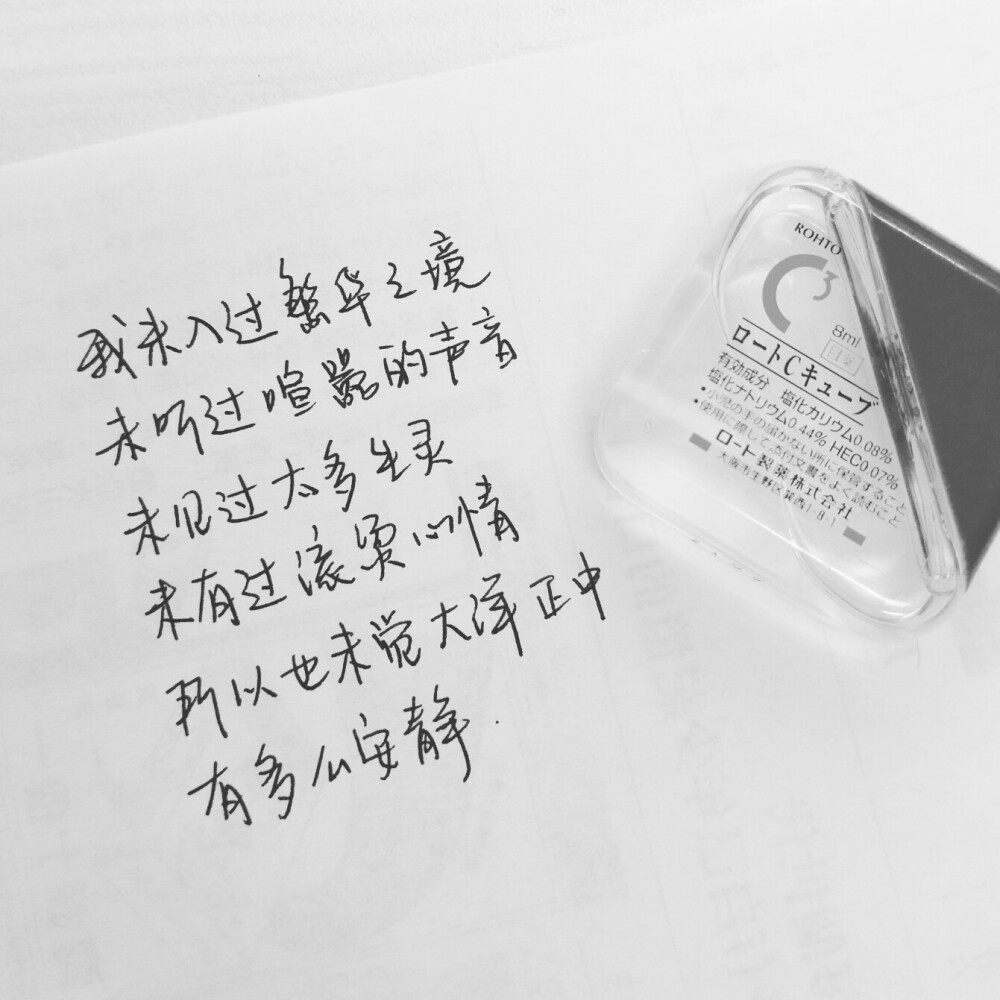 我未入过繁华之境
未听过喧嚣的声音
未见过太多生灵
未有过滚烫心情
所以也未觉大洋正中
有多么安静.
ROHTO
C3
8ml
目薬
ロートCキューブ
有効成分 塩化カリウム0.08%
塩化ナトリウム0.44% HEC0.07%
•小児の手の届かない所に保管すること
•使用に際して添付文書をよく読むこと
ロート製薬株式会社
大阪市生野区巽西1-8-1